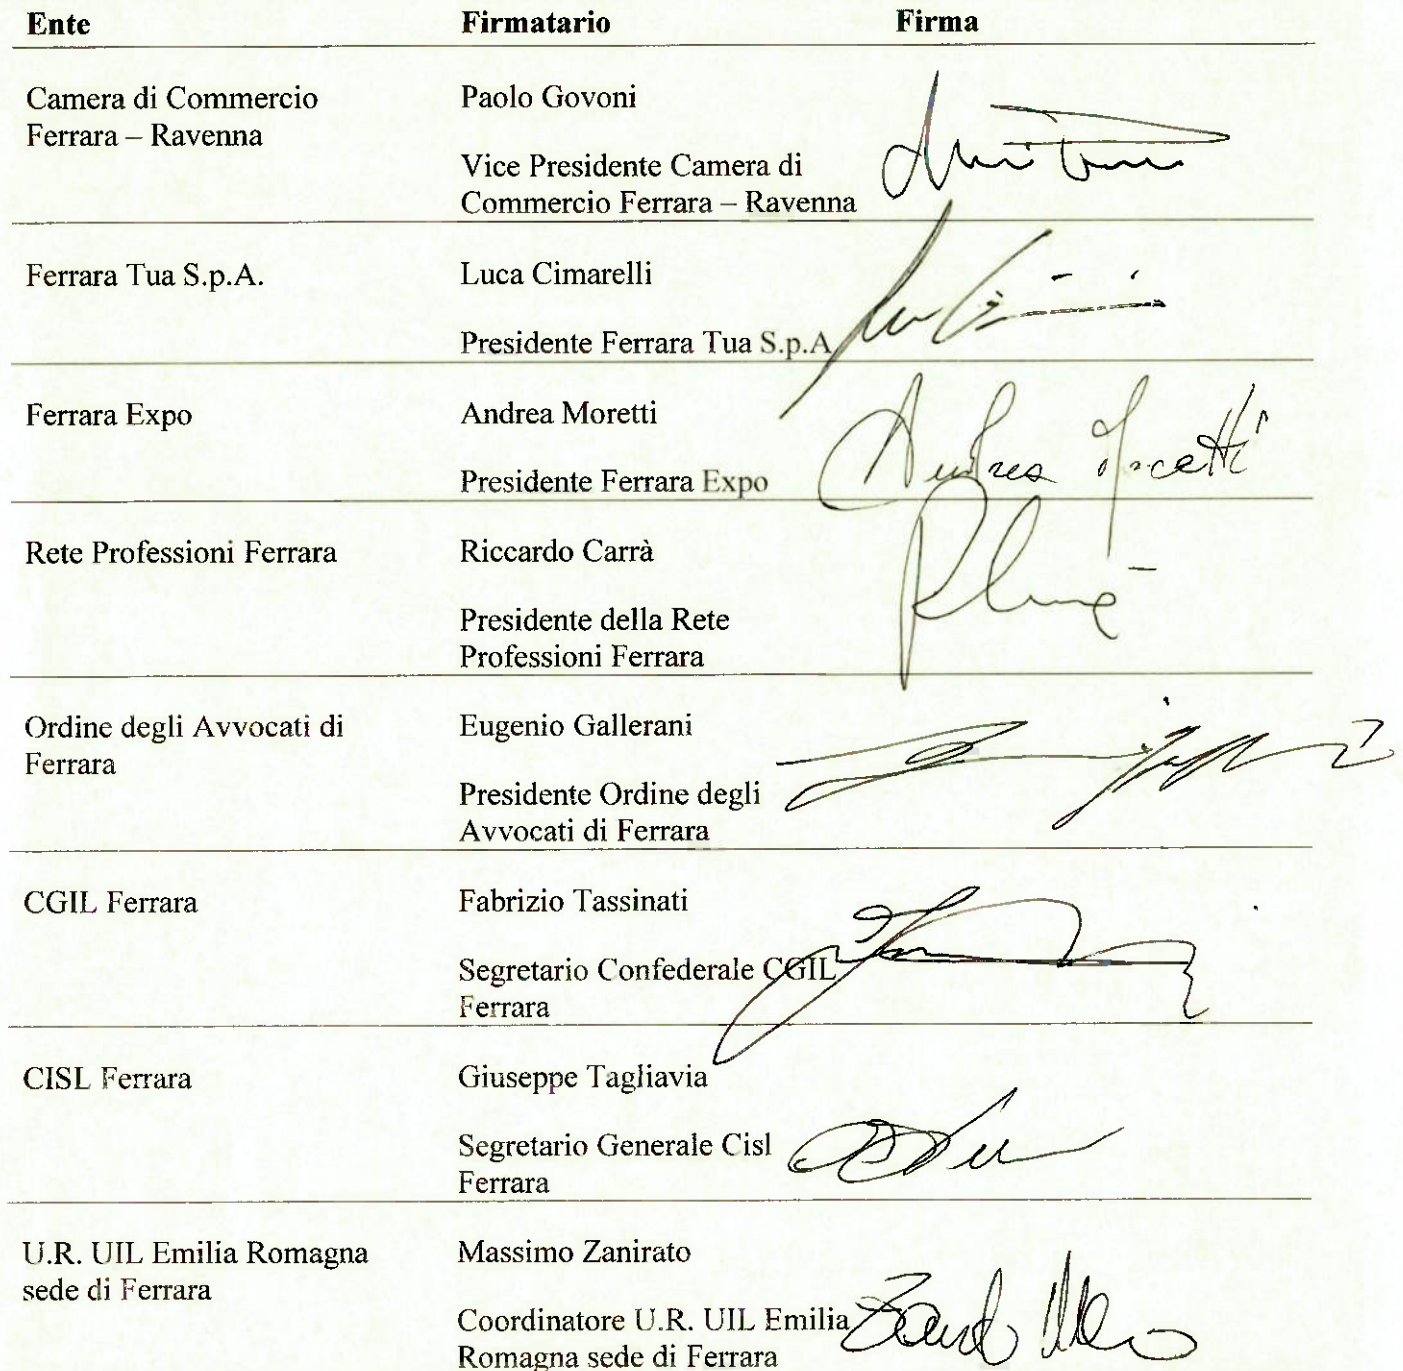 Ente Firmatario Firma
Camera di Commercio
Ferrara – Ravenna
Paolo Govoni
Vice Presidente Camera di
Commercio Ferrara – Ravenna
Ferrara Tua S.p.A.
Luca Cimarelli
Presidente Ferrara Tua S.p.A
Ferrara Expo
Andrea Moretti
Presidente Ferrara Expo
Andrea Moretti
Rete Professioni Ferrara
Riccardo Carrà
Presidente della Rete
Professioni Ferrara
Ordine degli Avvocati di
Ferrara
Eugenio Gallerani
Presidente Ordine degli
Avvocati di Ferrara
CGIL Ferrara
Fabrizio Tassinati
Segretario Confederale CGIL
Ferrara
CISL Ferrara
Giuseppe Tagliavia
Segretario Generale Cisl
Ferrara
U.R. UIL Emilia Romagna
sede di Ferrara
Massimo Zanirato
Coordinatore U.R. UIL Emilia
Romagna sede di Ferrara